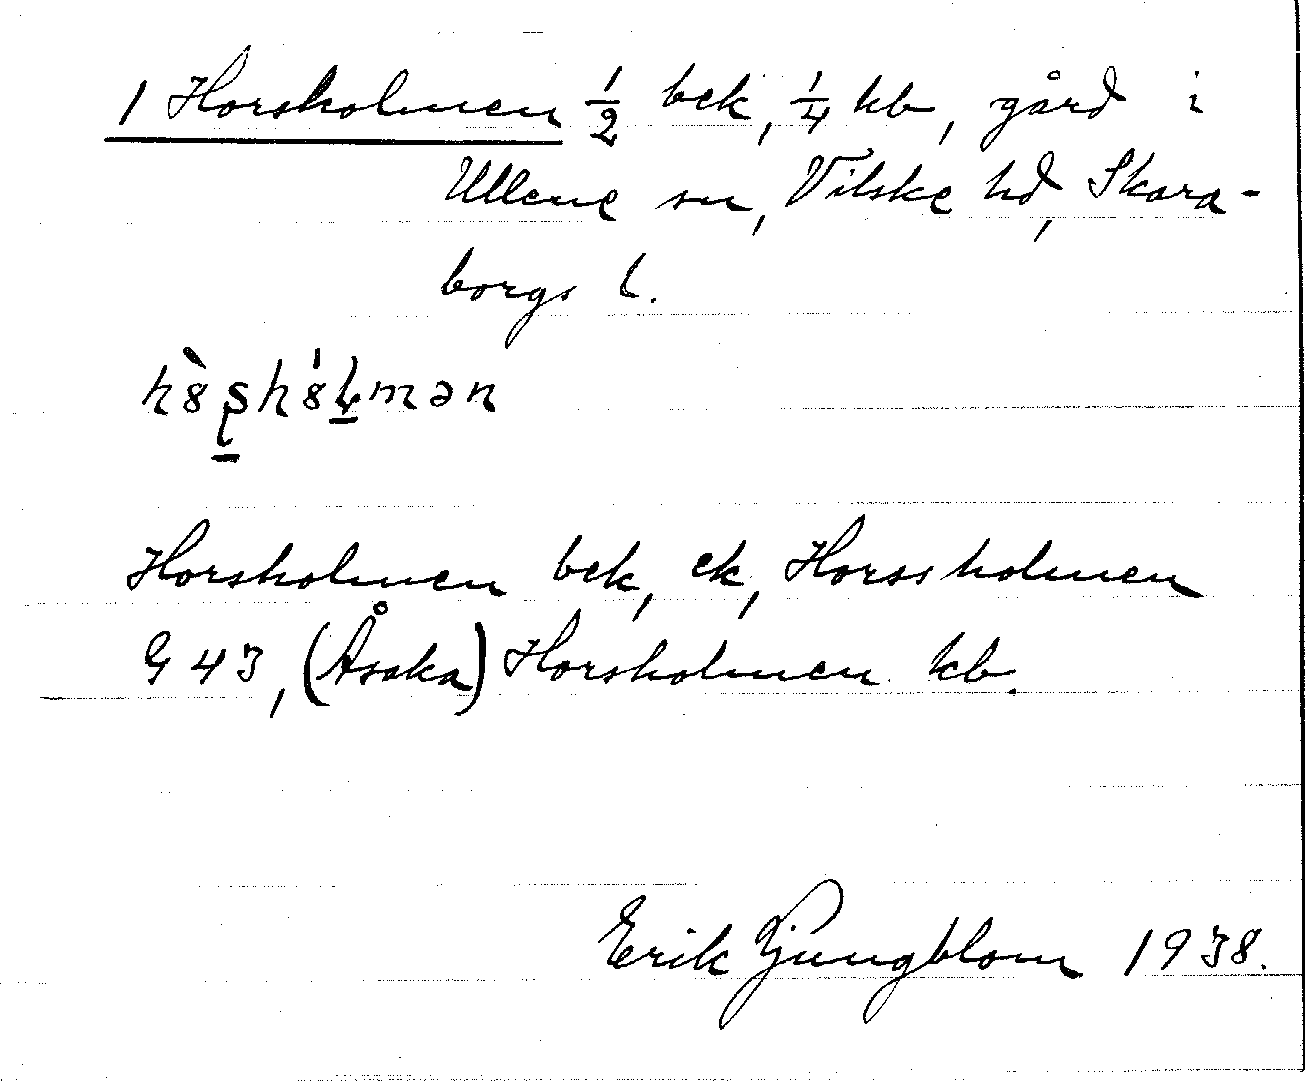 1 Horsholmen 1/2 bek, 1/4 kb, gård i
Ullene sn, Vilske hd, Skara-
borgs l.
Horsholmen bek, ek, Horssholmen
G 43, (Åsaka) Horsholmen kb.
Erik Ljungblom 1938.